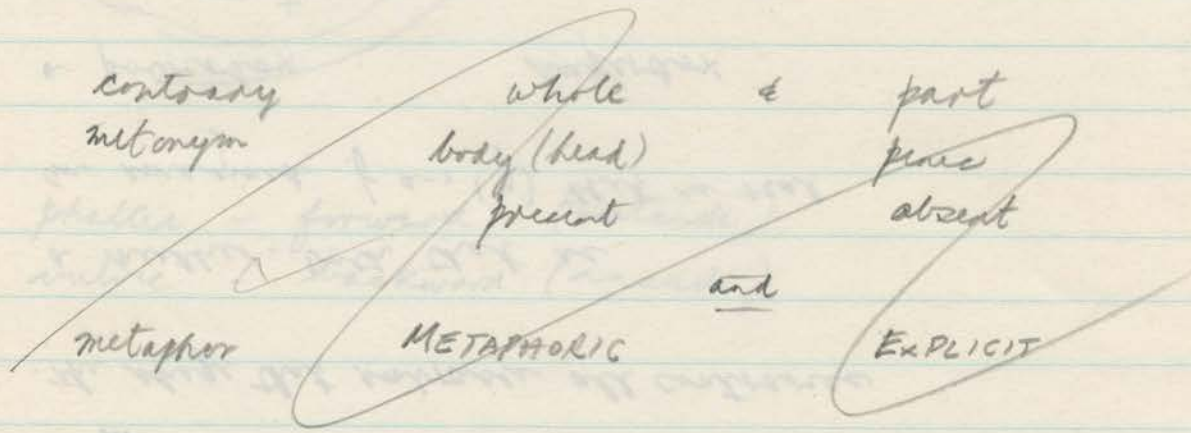 contrary whole & part
metonym body (head) penis
present absent
and
metaphor METAPHORIC EXPLICIT